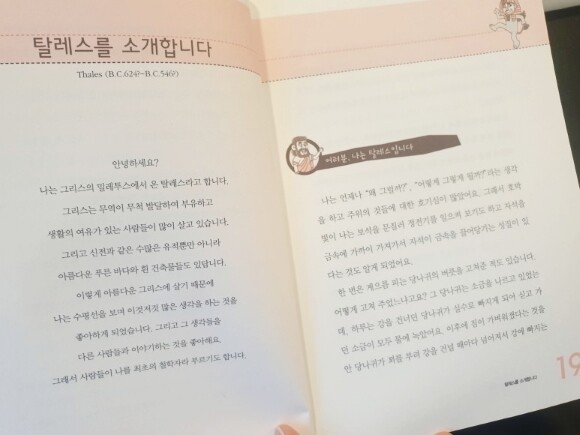 탈레스를 소개합니다
Thales (B.C.624?~B.C.546?)
안녕하세요?
나는 그리스의 밀레투스에서 온 탈레스라고 합니다.
그리스는 무역이 무척 발달하여 부유하고
생활의 여유가 있는 사람들이 많이 살고 있습니다.
그리고 신전과 같은 수많은 유적뿐만 아니라
아름다운 푸른 바다와 흰 건축물들도 있답니다.
이렇게 아름다운 그리스에 살기 때문에
나는 수평선을 보며 이것저것 많은 생각을 하는 것을
좋아하게 되었습니다. 그리고 그 생각들을
다른 사람들과 이야기하는 것을 좋아해요.
그래서 사람들이 나를 최초의 철학자라 부르기도 합니다.
여러분, 나는 탈레스입니다
나는 언제나 “왜 그럴까?”, “어떻게 그렇게 될까?”라는 생각
을 하고 주위의 것들에 대한 호기심이 많았어요. 그래서 호박
빛이 나는 보석을 문질러 정전기를 일으켜 보기도 하고 자석을
금속에 가까이 가져가서 자석이 금속을 끌어당기는 성질이 있
다는 것도 알게 되었어요.
한 번은 제으름 피는 당나귀의 버릇을 고쳐준 적도 있습니다.
어떻게 고쳐 주었느냐고요? 그 당나귀는 소금을 나르고 있었는
데, 하루는 강을 건너던 당나귀가 실수로 빠지게 되어 싣고 가
던 소금이 모두 물에 녹았어요. 이후에 짐이 가벼워졌다는 것을
안 당나귀가 꾀를 부려 강을 건널 때마다 넘어져서 강에 빠지는
탈레스를 소개합니다
19